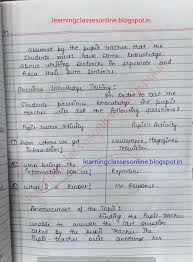 learningclassesonline.blogspot.in
assumed by the pupil teacher that the
students must have some knowledge
about writing sentences in sequence and
from their own sentences.
Previous Knowledge Testing:
In order to test the
students previous knowledge the pupil
teacher will ask the following questions
Pupil-teacher Activity Pupil's Activity
① From where we get Newspaper, Magazines
information? Television
learningclassesonline.blogspot.in
② Who brings the Reporters
information for us?
③ What is a Report? No Response.
Announcement of the Topic:
Finding the Pupil-teacher
unable to answer the last question
asked by the Pupil Teacher. The
Pupil-teacher will announce